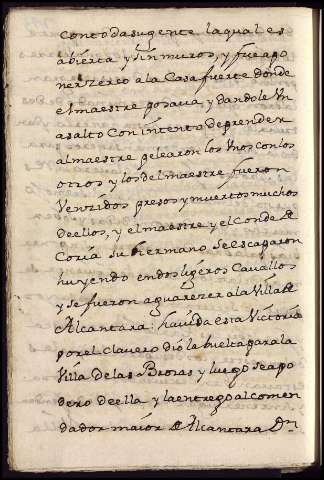 Con toda su gente laqual es
abierta y sin muros, y fue apo
ner zerco ala Casa fuerte donde
el maestre posaua y dandole Vn
asalto Con intento de prender
al maestre pelearon los Vnos con los
otros y los del maestre fueron
Venzidos presos y muertos muchos
de ellos, y el maestre y el Conde de
Coria su hermano se escaparon
huyendo en dos ligeros Cauallos
y se fueron aguarezer ala Villa de
Alcantara; hauida esta Victoria
por el clauero diò la buelta para la
Villa de las Brozas y luego se apo
dero de ella y la entregò al comen
dador maior de Alcantara Dn